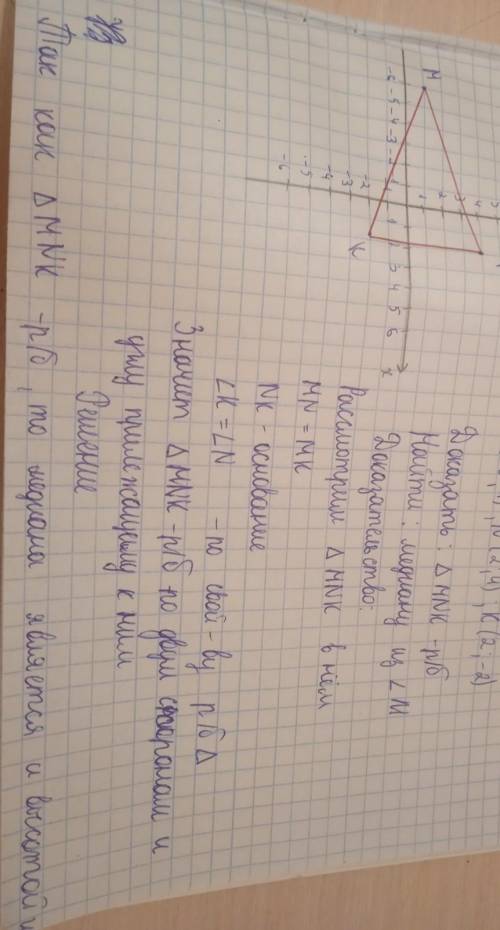 N(2;4), K(2;-2)
Доказать: Δ MNK -р/б
Найти: медиану из ∠M
Доказательство:
Рассмотрим Δ MNK в нём
MN = MK
NK - основание
∠K = ∠N - по свой-ву р/б Δ
Значит Δ MNK -р/б по двум сторонам и
углу прилежащему к ним
Решение
Так как Δ MNK -р/б, то медиана является и высотой и
M
K
x
-6 -5 -4 -3 -2 1 3 4 5 6
1 2 3 4
-2 -3 -4 -5 -6